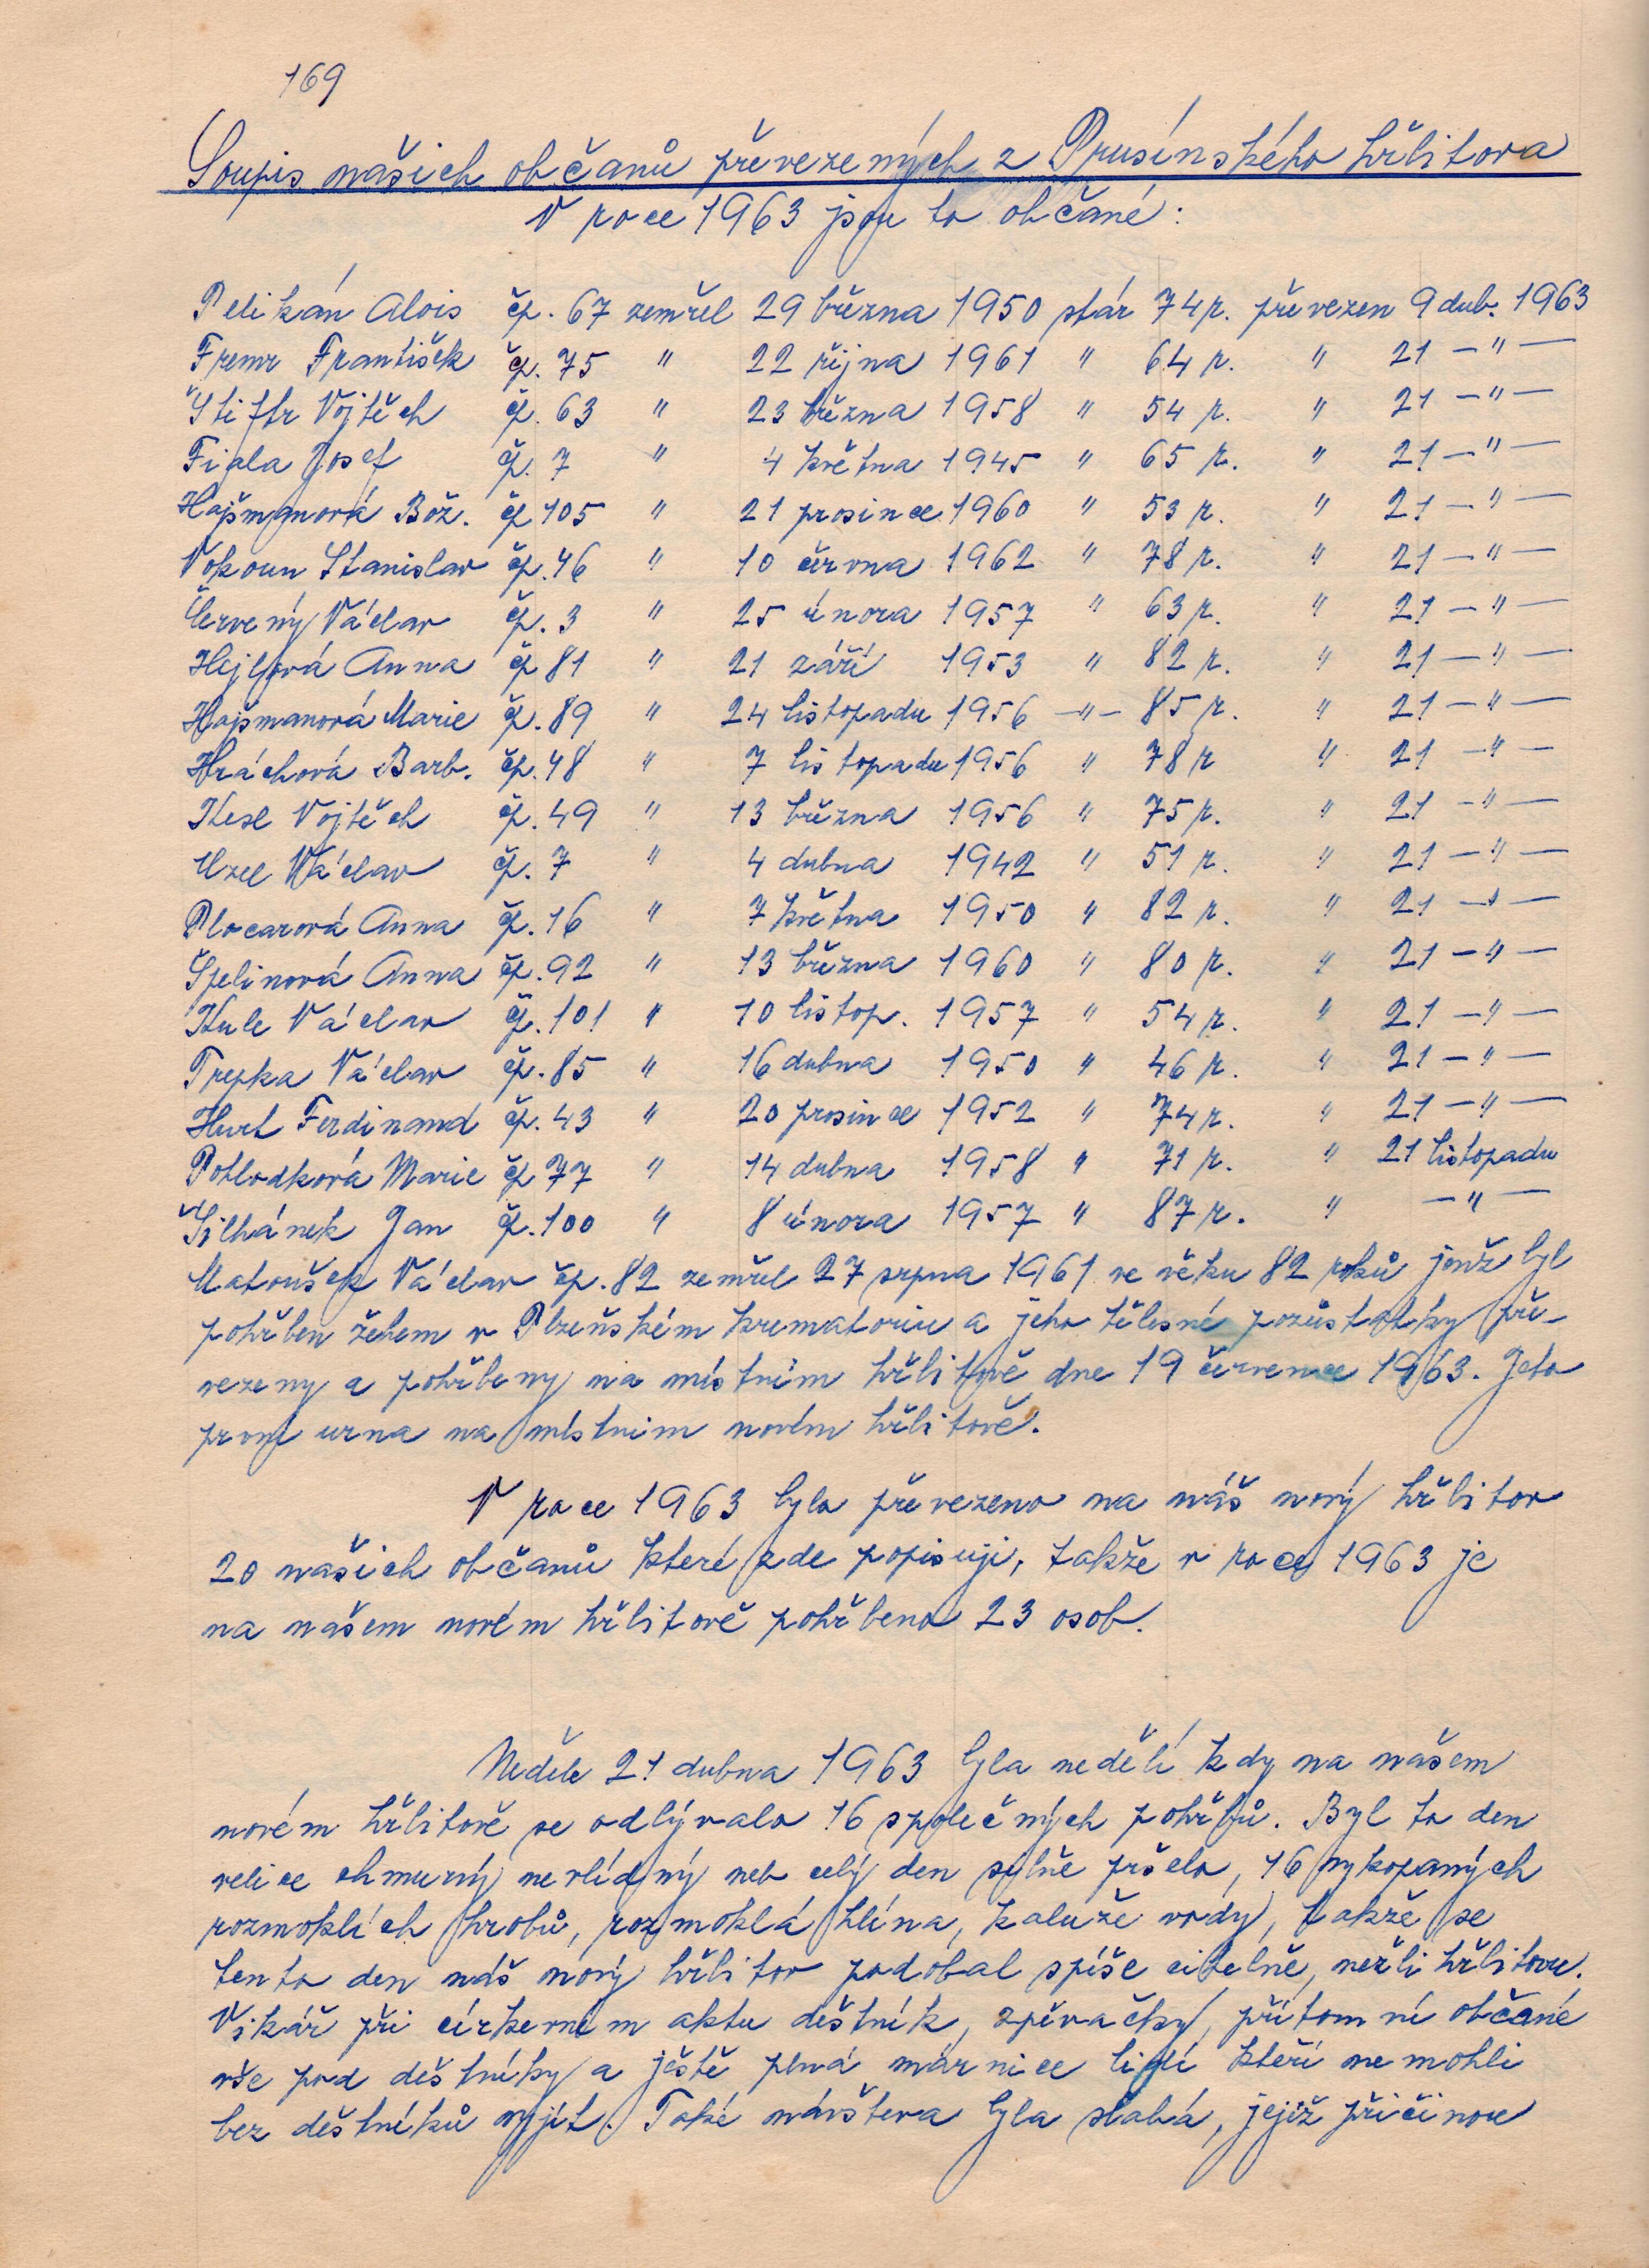 169
Soupis našich občanů převezených z Prusínského hřbitova
V roce 1963 jsou to občané:
Pelikán Alois čp. 67 zemřel 29 března 1950 stár 74 r. převezen 9 dub. 1963
Fremr František čp. 75 " 22 října 1961 " 64 r. " 21 – " –
Štiftr Vojtěch čp. 63 " 23 března 1958 " 54 r. " 21 – " –
Fiala Josef čp. 7 " 4 května 1945 " 65 r. " 21 – " –
Hajšmanová Bož. čp 105 " 21 prosince 1960 " 53 r. " 21 – " –
Vokoun Stanislav čp. 46 " 10 června 1962 " 78 r. " 21 – " –
Červený Václav čp. 3 " 25 února 1957 " 63 r. " 21 – " –
Hejlová Anna čp 81 " 21 září 1953 " 82 r. " 21 – " –
Hajšmanová Marie čp. 89 " 24 listopadu 1956 – " – 85 r. " 21 – " –
Hráchová Barb. čp. 48 " 7 listopadu 1956 " 78 r " 21 – " –
Kesl Vojtěch čp. 49 " 13 března 1956 " 75 r. " 21 – " –
Uzel Václav čp. 7 " 4 dubna 1942 " 51 r. " 21 – " –
Plocarová Anna čp. 16 " 7 května 1950 " 82 r. " 21 – " –
Špelinová Anna čp. 92 " 13 března 1960 " 80 r. " 21 – " –
Kule Václav čp. 101 " 10 listop. 1957 " 54 r. " 21 – " –
Trepka Václav čp. 85 " 16 dubna 1950 " 46 r. " 21 – " –
Hurt Ferdinand čp. 43 " 20 prosince 1952 " 74 r. " 21 – " –
Potlodková Marie čp 77 " 14 dubna 1958 " 71 r. " 21 listopadu
Šilhánek Jan čp. 100 " 8 února 1957 " 87 r. " – " –
Matoušek Václav čp. 82 zemřel 27 srpna 1961 ve věku 82 roků jenž byl
pohřben žehem v Plzeňském krematoriu a jeho tělesné pozůstatky pře-
vezeny a pohřbeny na místním hřbitově dne 19 července 1963. Jeto
první urna na místnim novém hřbitově.
V roce 1963 bylo převezeno na náš nový hřbitov
20 našich občanů které zde popisuji, takže v roce 1963 je
na našem novém hřbitově pohřbeno 23 osob.
Neděle 21 dubna 1963 byla nedělí kdy na našem
novém hřbitově se odbývalo 16 společných pohřbů. Byl to den
velice chmurný nevlídný neb celý den silně pršelo, 16 vykopaných
rozmoklích hrobů, rozmoklá hlína, kaluže vody, takže se
tento den náš nový hřbitov podobal spíše cihelně, nežli hřbitovu.
Vikář při církevním aktu deštník, zpěvačky, přítomní občané
vše pod deštníky a ještě plná márnice lidí kteří nemohli
bez deštníků vyjít. Také návštěva byla slabá, jejíž příčinou